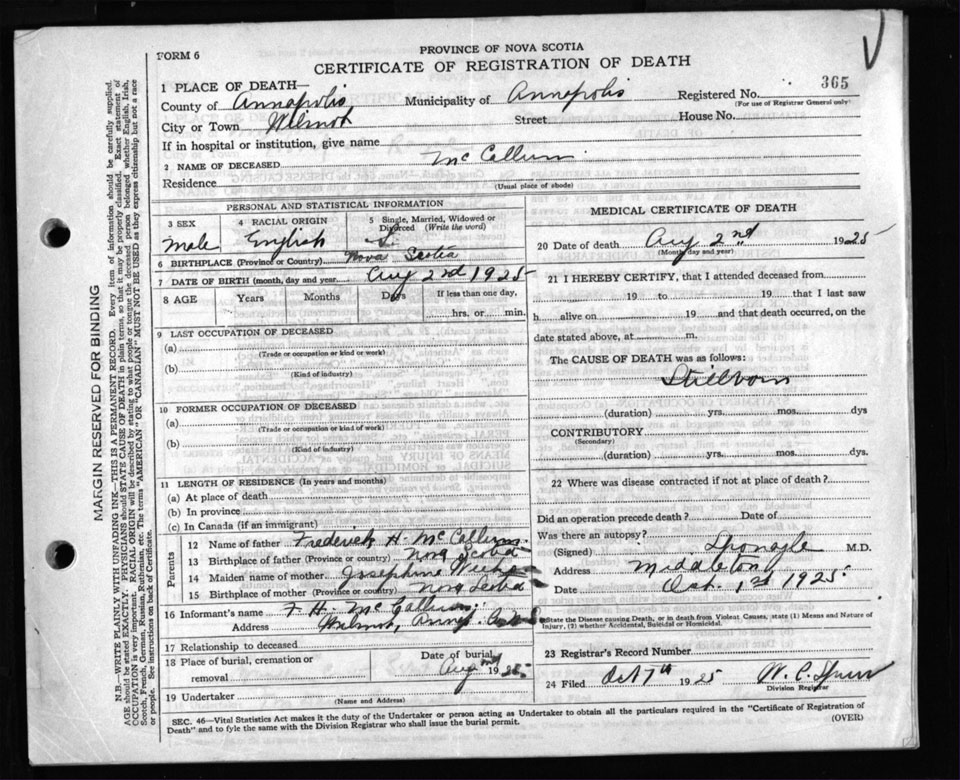 FORM 6
PROVINCE OF NOVA SCOTIA
CERTIFICATE OF REGISTRATION OF DEATH
365
1 PLACE OF DEATH—
Registered No.
(For use of Registrar General only)
County of Annapolis, Municipality of Annapolis
City or Town Wilmot Street House No.
If in hospital or institution, give name
2 NAME OF DECEASED McCallum
Residence
(Usual place of abode)
PERSONAL AND STATISTICAL INFORMATION
3 SEX
Male
4 RACIAL ORIGIN
English
5 Single, Married, Widowed or
Divorced (Write the word)
S.
6 BIRTHPLACE (Province or Country) Nova Scotia
7 DATE OF BIRTH (month, day and year) Aug 2nd 1925
8 AGE Years Months Days If less than one day,
hrs. or min.
9 LAST OCCUPATION OF DECEASED
(a)
(Trade or occupation or kind or work)
(b)
(Kind of industry)
10 FORMER OCCUPATION OF DECEASED
(a)
(Trade or occupation or kind of work)
(b)
(Kind of industry)
11 LENGTH OF RESIDENCE (In years and months)
(a) At place of death
(b) In province
(c) In Canada (if an immigrant)
Parents
12 Name of father Frederick H. McCallum
13 Birthplace of father (Province or country) Nova Scotia
14 Maiden name of mother Josephine
15 Birthplace of mother (Province or country) Nova Scotia
16 Informant's name F. H. McCallum
Address Wilmot, Annap.
17 Relationship to deceased
18 Place of burial, cremation or
removal
Date of burial
Aug 1925
19 Undertaker
(Name and Address)
MEDICAL CERTIFICATE OF DEATH
20 Date of death Aug 2nd 1925
(Month, day and year)
21 I HEREBY CERTIFY, that I attended deceased from
19 to 19 that I last saw
h alive on 19 and that death occurred, on the
date stated above, at m.
The CAUSE OF DEATH was as follows:
Stillborn
(duration) yrs. mos. dys
CONTRIBUTORY
(Secondary)
(duration) yrs. mos. dys.
22 Where was disease contracted if not at place of death?
Did an operation precede death? Date of
Was there an autopsy?
(Signed) Sponagle M.D.
Address Middleton
Date Oct. 1st 1925
State the Disease causing Death, or in death from Violent Causes, state (1) Means and Nature of
Injury, (2) whether Accidental, Suicidal or Homicidal.
23 Registrar's Record Number
24 Filed Oct 7th 1925 W. C. Spurr
Division Registrar
SEC. 46—Vital Statistics Act makes it the duty of the Undertaker or person acting as Undertaker to obtain all the particulars required in the "Certificate of Registration of
Death" and to fyle the same with the Division Registrar who shall issue the burial permit.
(OVER)
MARGIN RESERVED FOR BINDING
N.B.—WRITE PLAINLY WITH UNFADING INK—THIS IS A PERMANENT RECORD. Every item of information should be carefully supplied.
AGE should be stated EXACTLY. PHYSICIANS should STATE CAUSE OF DEATH in plain terms, so that it may be properly classified. Exact statement of
OCCUPATION is very important. RACIAL ORIGIN will be described by stating to what people or tongue the deceased person belonged whether English, Irish,
Scotch, French, German, Russian, Ruthenian, etc. The terms "AMERICAN" OR "CANADIAN" MUST NOT BE USED as they express citizenship but not a race
or people. See instructions on back of Certificate.